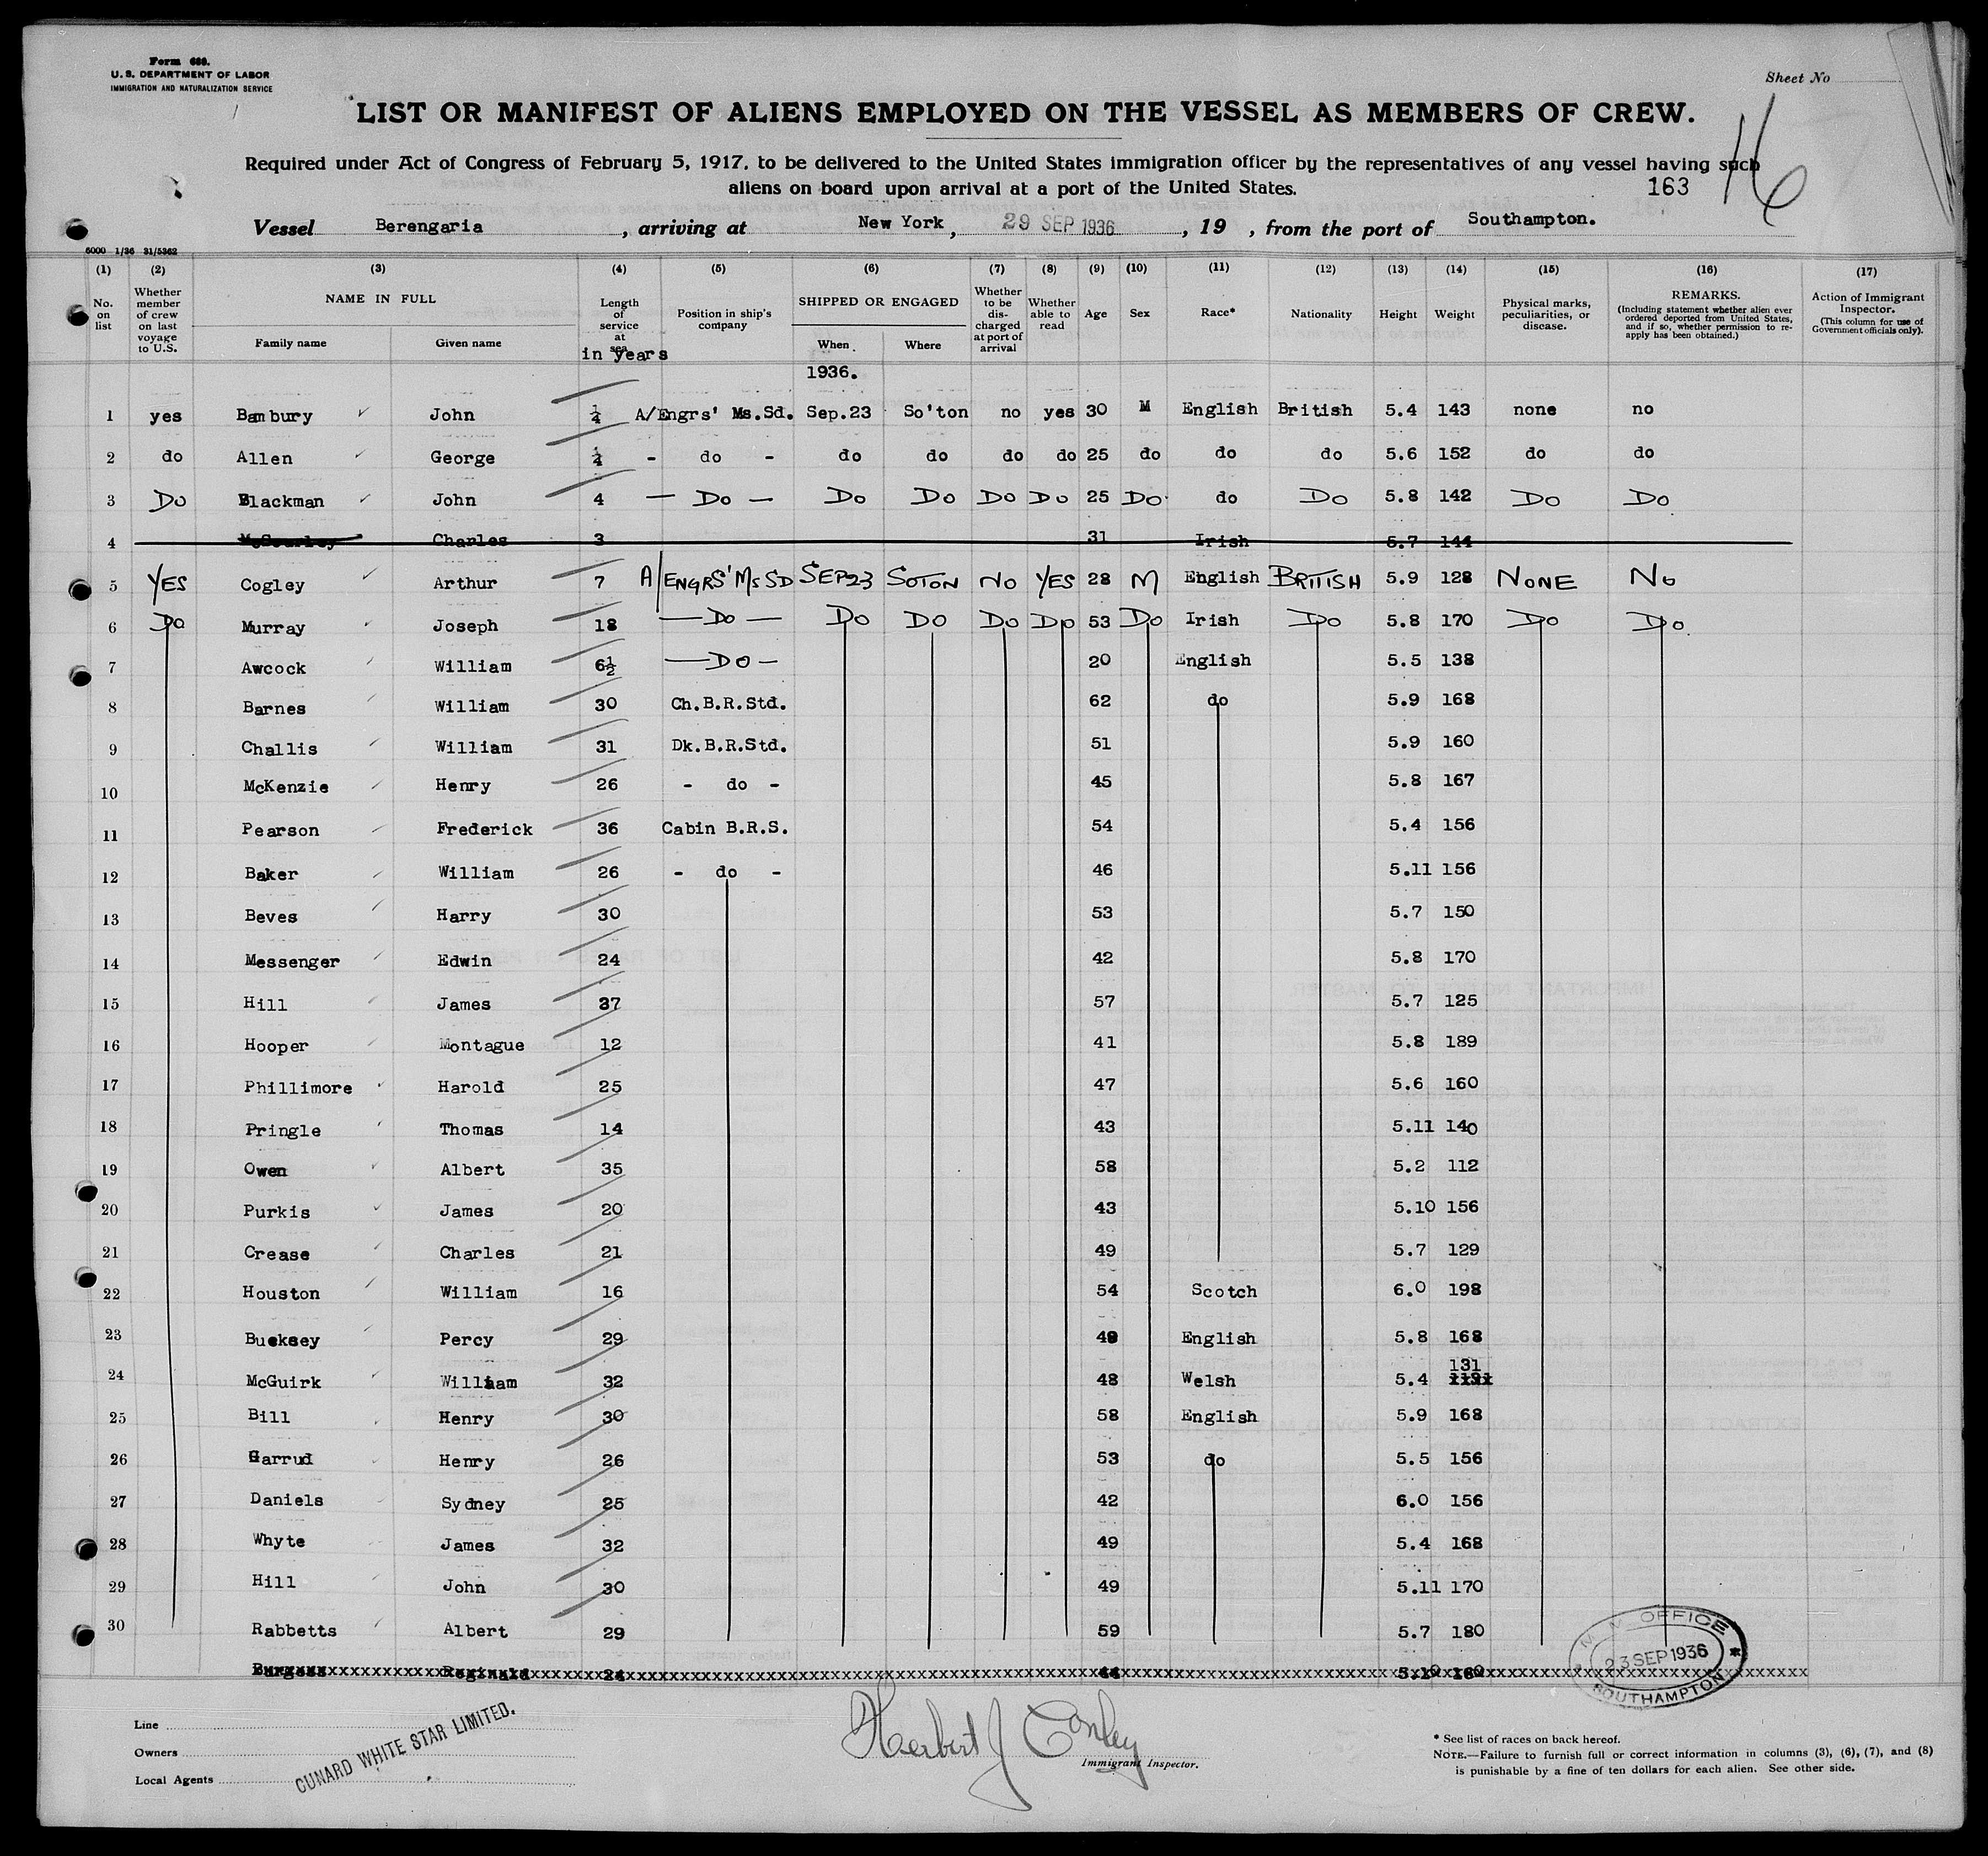 Form 689.
U. S. DEPARTMENT OF LABOR
IMMIGRATION AND NATURALIZATION SERVICE
Sheet No
16
LIST OR MANIFEST OF ALIENS EMPLOYED ON THE VESSEL AS MEMBERS OF CREW.
Required under Act of Congress of February 5, 1917, to be delivered to the United States immigration officer by the representatives of any vessel having such
aliens on board upon arrival at a port of the United States.
163
Vessel Berengaria , arriving at New York , 29 SEP 1936 , 19 , from the port of Southampton.
6000 1/36 31/5362
(1) (2) (3) (4) (5) (6) (7) (8) (9) (10) (11) (12) (13) (14) (15) (16) (17)
No. on list Whether member of crew on last voyage to U.S. NAME IN FULL Family name Given name Length of service at sea in years Position in ship's company SHIPPED OR ENGAGED When Where Whether to be discharged at port of arrival Whether able to read Age Sex Race* Nationality Height Weight Physical marks, peculiarities, or disease. REMARKS. (Including statement whether alien ever ordered deported from United States, and if so, whether permission to re-apply has been obtained.) Action of Immigrant Inspector. (This column for use of Government officials only).
1936.
1 yes Bambury John 1/4 A/Engrs' Ms.Sd. Sep.23 So'ton no yes 30 M English British 5.4 143 none no
2 do Allen George 1/4 - do - do do do do 25 do do do 5.6 152 do do
3 Do Blackman John 4 - Do - Do Do Do Do 25 Do do Do 5.8 142 Do Do
4 Charles 3 31 Irish 5.7 144
5 YES Cogley Arthur 7 A/ENGRS' Ms SD SEP23 SOTON NO YES 28 M English BRITISH 5.9 128 NONE No
6 Do Murray Joseph 18 - Do - Do Do Do Do 53 Do Irish Do 5.8 170 Do Do
7 Awcock William 6½ - DO - 20 English 5.5 138
8 Barnes William 30 Ch.B.R.Std. 62 do 5.9 168
9 Challis William 31 Dk.B.R.Std. 51 5.9 160
10 McKenzie Henry 26 - do - 45 5.8 167
11 Pearson Frederick 36 Cabin B.R.S. 54 5.4 156
12 Baker William 26 - do - 46 5.11 156
13 Beves Harry 30 53 5.7 150
14 Messenger Edwin 24 42 5.8 170
15 Hill James 37 57 5.7 125
16 Hooper Montague 12 41 5.8 189
17 Phillimore Harold 25 47 5.6 160
18 Pringle Thomas 14 43 5.11 140
19 Owen Albert 35 58 5.2 112
20 Purkis James 20 43 5.10 156
21 Crease Charles 21 49 5.7 129
22 Houston William 16 54 Scotch 6.0 198
23 Bucksey Percy 29 English 5.8 168
24 McGuirk William 32 48 Welsh 5.4 131
25 Bill Henry 30 58 English 5.9 168
26 Garrud Henry 26 53 do 5.5 156
27 Daniels Sydney 25 42 6.0 156
28 Whyte James 32 49 5.4 168
29 Hill John 30 49 5.11 170
30 Rabbetts Albert 29 59 5.7 180
Reginald 24 44 5.10 160
M. M. OFFICE
23 SEP 1936
SOUTHAMPTON
Line
Owners
Local Agents
CUNARD WHITE STAR LIMITED.
Herbert J Conley
Immigrant Inspector.
* See list of races on back hereof.
NOTE.—Failure to furnish full or correct information in columns (3), (6), (7), and (8)
is punishable by a fine of ten dollars for each alien. See other side.